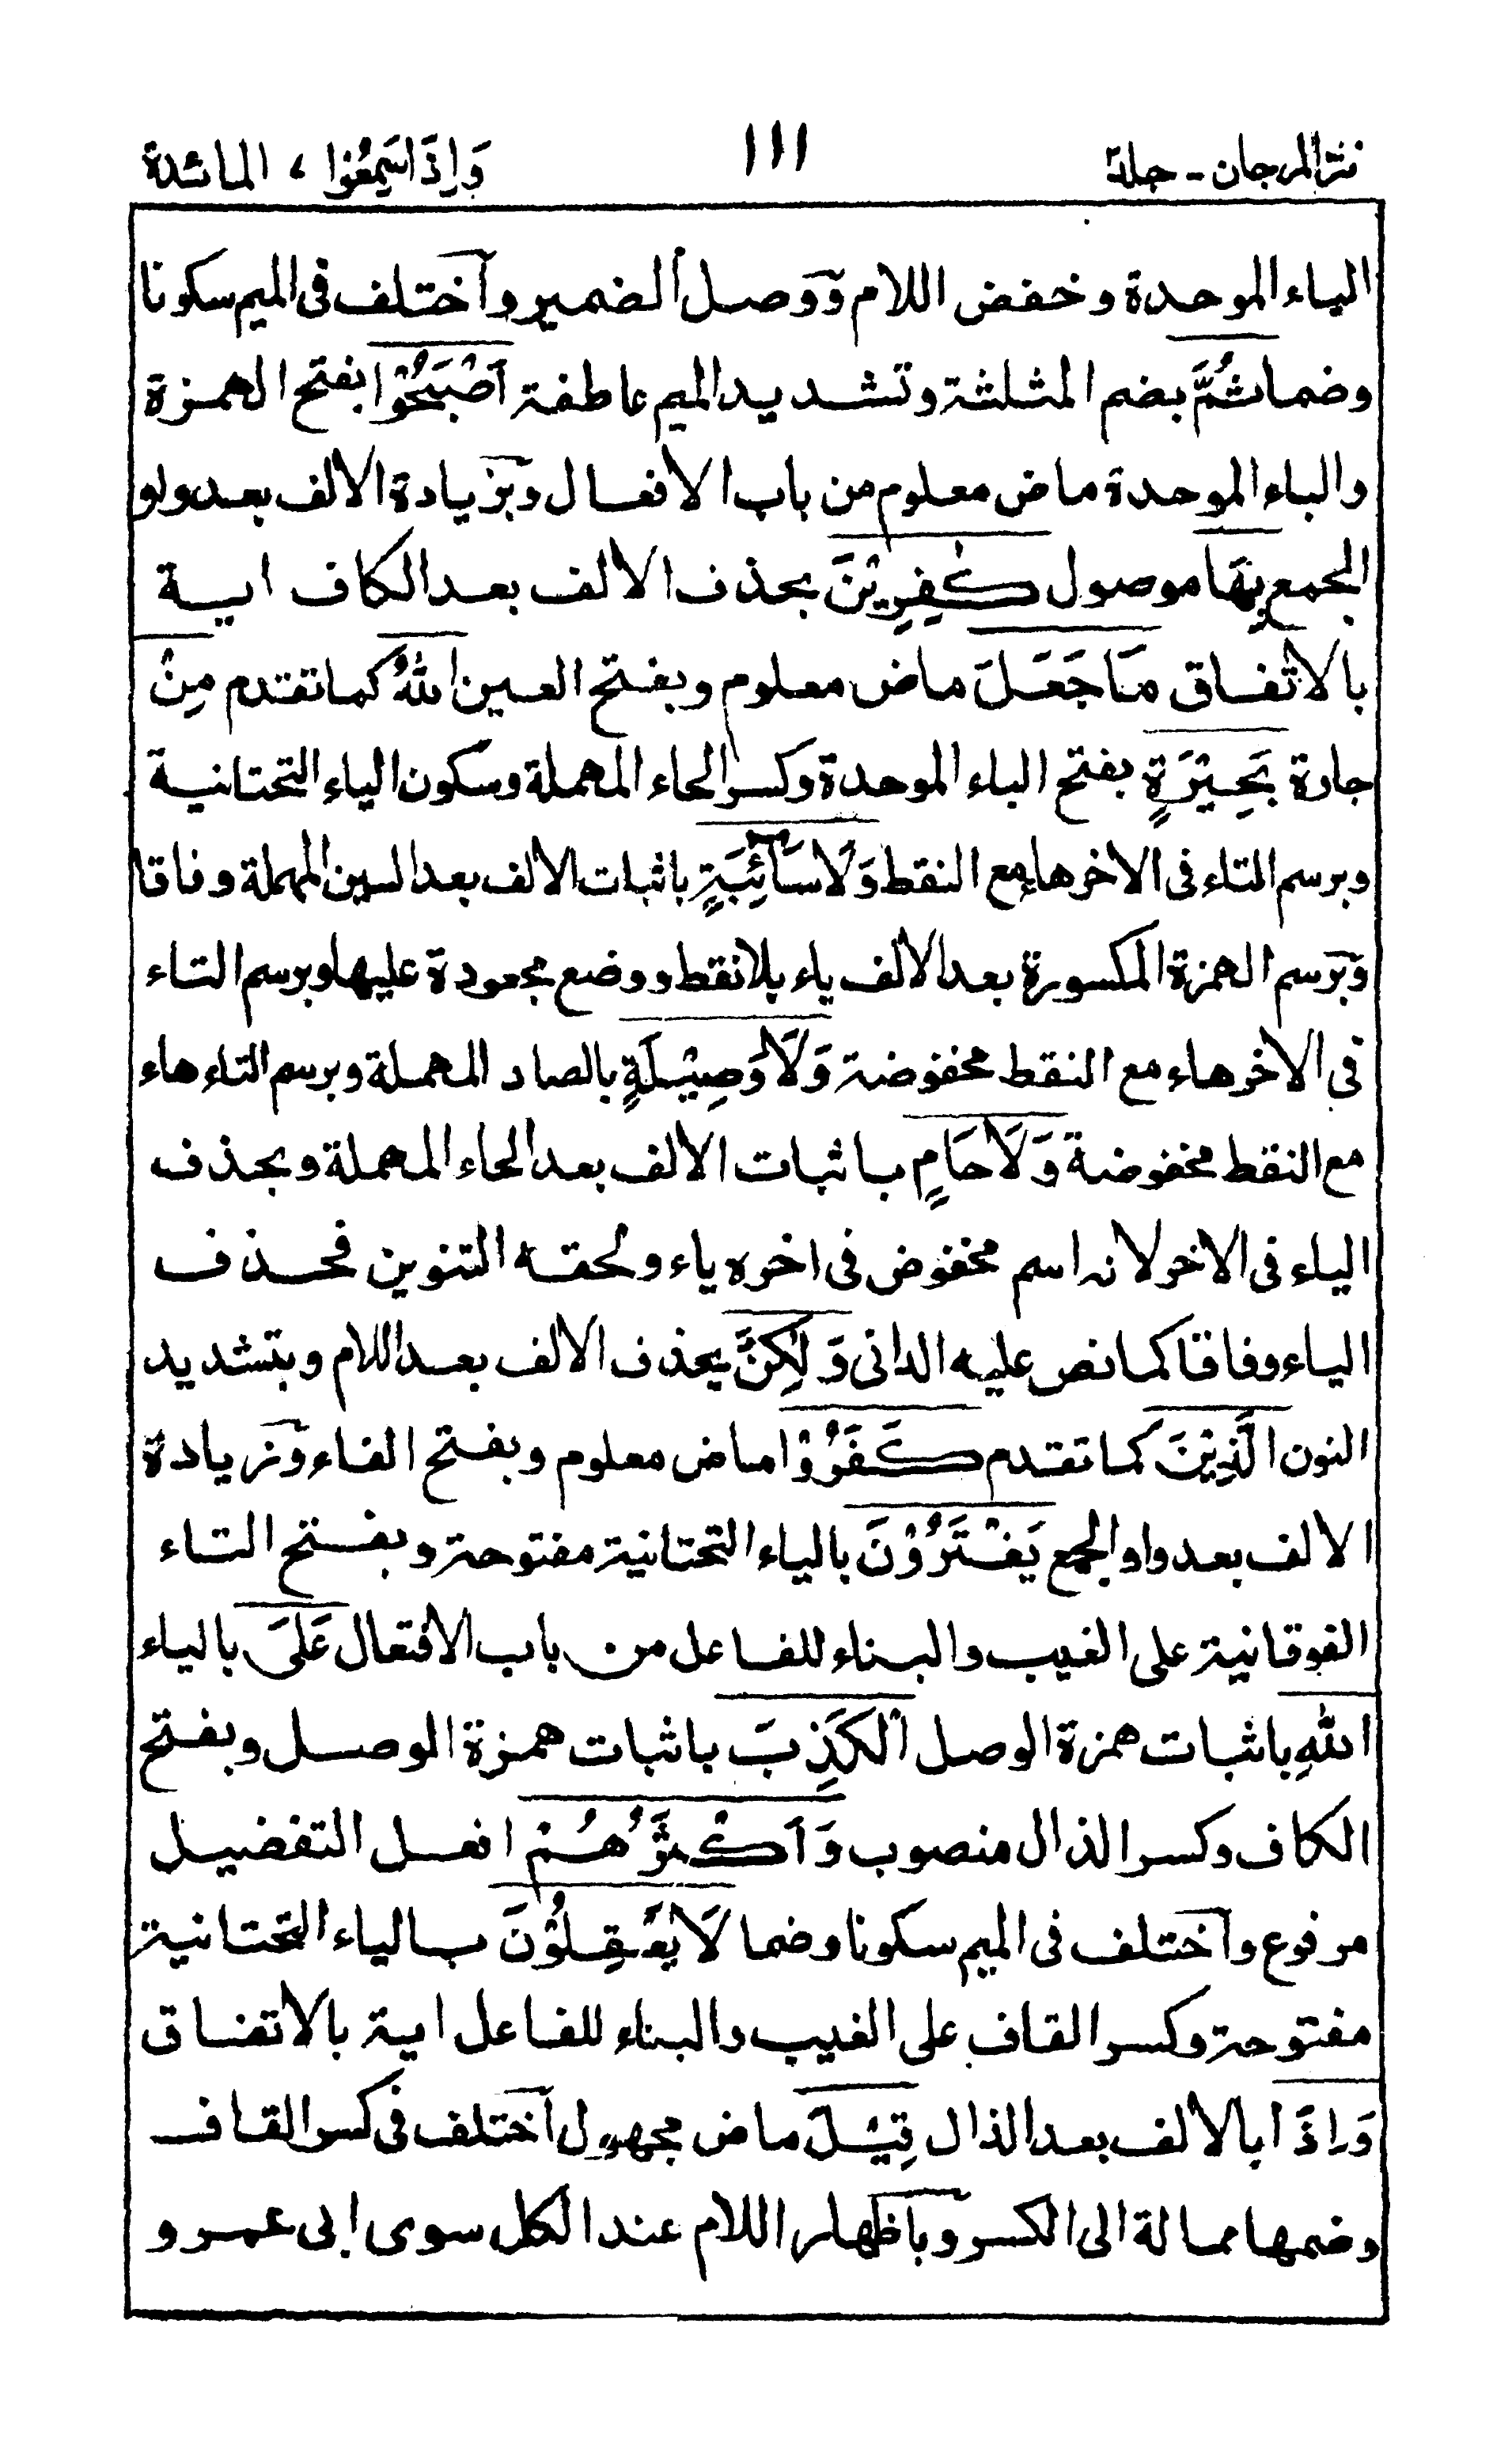 نثر المرجان - جلد٢
١١١
وَاِذَا سَمِعُوْا ٧ المائدة
الباء الموحدة وخفض اللام ووصل الضمير واختلف فى الميم سكونا
وضما ثُمَّ بضم المثلثة وتشديد الميم عاطفة اَصْبَحُوْا بفتح الهمزة
والباء الموحدة ماض معلوم من باب الافعال وبزيادة الالف بعد واو
الجمع بِهَا موصول كٰفِرِيْنَ بحذف الالف بعد الكاف اية
بالاتفاق مَا جَعَلَ ماض معلوم وبفتح العين اللّٰهُ كما تقدم مِنْ
جارة بَحِيْرَةٍ بفتح الباء الموحدة وكسر الحاء المهملة وسكون الياء التحتانية
وبرسم التاء فى الاخر هاء مع النقط وَلَا سَآئِبَةٍ باثبات الالف بعد السين المهملة وفاقا
وبرسم الهمزة المكسورة بعد الالف ياء بلا نقط ووضع مجعودة عليها وبرسم التاء
فى الاخر هاء مع النقط مخفوضة وَلَا وَصِيْلَةٍ بالصاد المهملة وبرسم التاء هاء
مع النقط مخفوضة وَلَا حَامٍ باثبات الالف بعد الحاء المهملة وبحذف
الياء فى الاخر لانه اسم مخفوض فى اخره ياء ولحقه التنوين فحذف
الياء وفاقا كما نص عليه الدانى وَلٰكِنَّ بحذف الالف بعد اللام وبتشديد
النون الَّذِيْنَ كما تقدم كَفَرُوْا ماض معلوم وبفتح الفاء وزيادة
الالف بعد واو الجمع يَفْتَرُوْنَ بالياء التحتانية مفتوحة وبفتح التاء
الفوقانية على الغيب والبناء للفاعل من باب الافتعال عَلَى بالياء
اللّٰهِ باثبات همزة الوصل الْكَذِبَ باثبات همزة الوصل وبفتح
الكاف وكسر الذال منصوب وَاَكْثَرُهُمْ افعل التفضيل
مرفوع واختلف فى الميم سكونا وضما لَا يَعْقِلُوْنَ بالياء التحتانية
مفتوحة وكسر القاف على الغيب والبناء للفاعل اية بالاتفاق
وَاِذَا بالالف بعد الذال قِيْلَ ماض مجهول اختلف فى كسر القاف
وضمها ممالة الى الكسر وباظهار اللام عند الكل سوى ابى عمرو